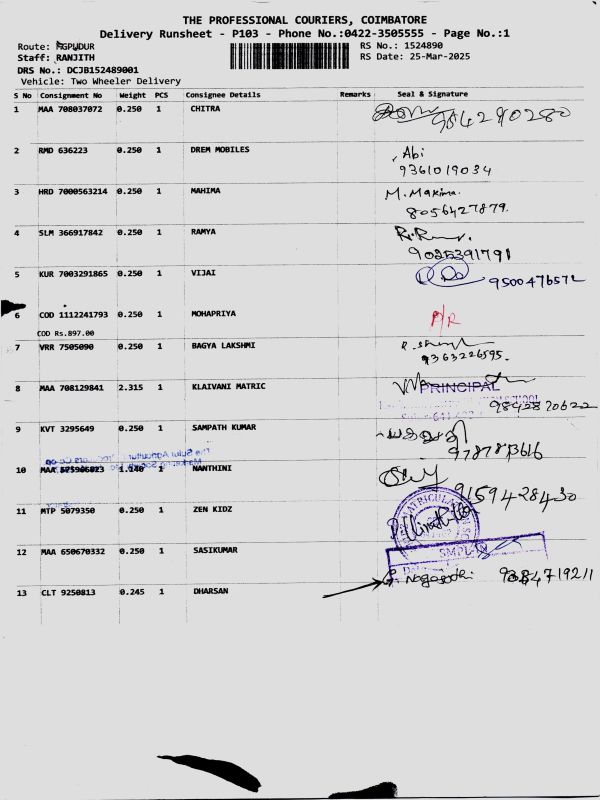 THE PROFESSIONAL COURIERS, COIMBATORE
Delivery Runsheet - P103 - Phone No.:0422-3505555 - Page No.:1
Route: MGPUDUR RS No.: 1524890
Staff: RANJITH RS Date: 25-Mar-2025
DRS No.: DCJB152489001
Vehicle: Two Wheeler Delivery
S No Consignment No Weight PCS Consignee Details Remarks Seal & Signature
1 MAA 708037072 0.250 1 CHITRA 984290280
2 RMD 636223 0.250 1 DREM MOBILES Abi
9361019034
3 HRD 7000563214 0.250 1 MAHIMA M. Mahima.
8056427879.
4 SLM 366917842 0.250 1 RAMYA
9025391791
5 KUR 7003291865 0.250 1 VIJAI 9500476572
6 COD 1112241793 0.250 1 MOHAPRIYA A/R
COD Rs.897.00
7 VRR 7505090 0.250 1 BAGYA LAKSHMI
9363226595.
8 MAA 708129841 2.315 1 KLAIVANI MATRIC PRINCIPAL
9842870622
9 KVT 3295649 0.250 1 SAMPATH KUMAR
10 MAA 575906823 1.140 1 NANTHINI
9159428430
11 MTP 5079350 0.250 1 ZEN KIDZ
12 MAA 650670332 0.250 1 SASIKUMAR
13 CLT 9250813 0.245 1 DHARSAN